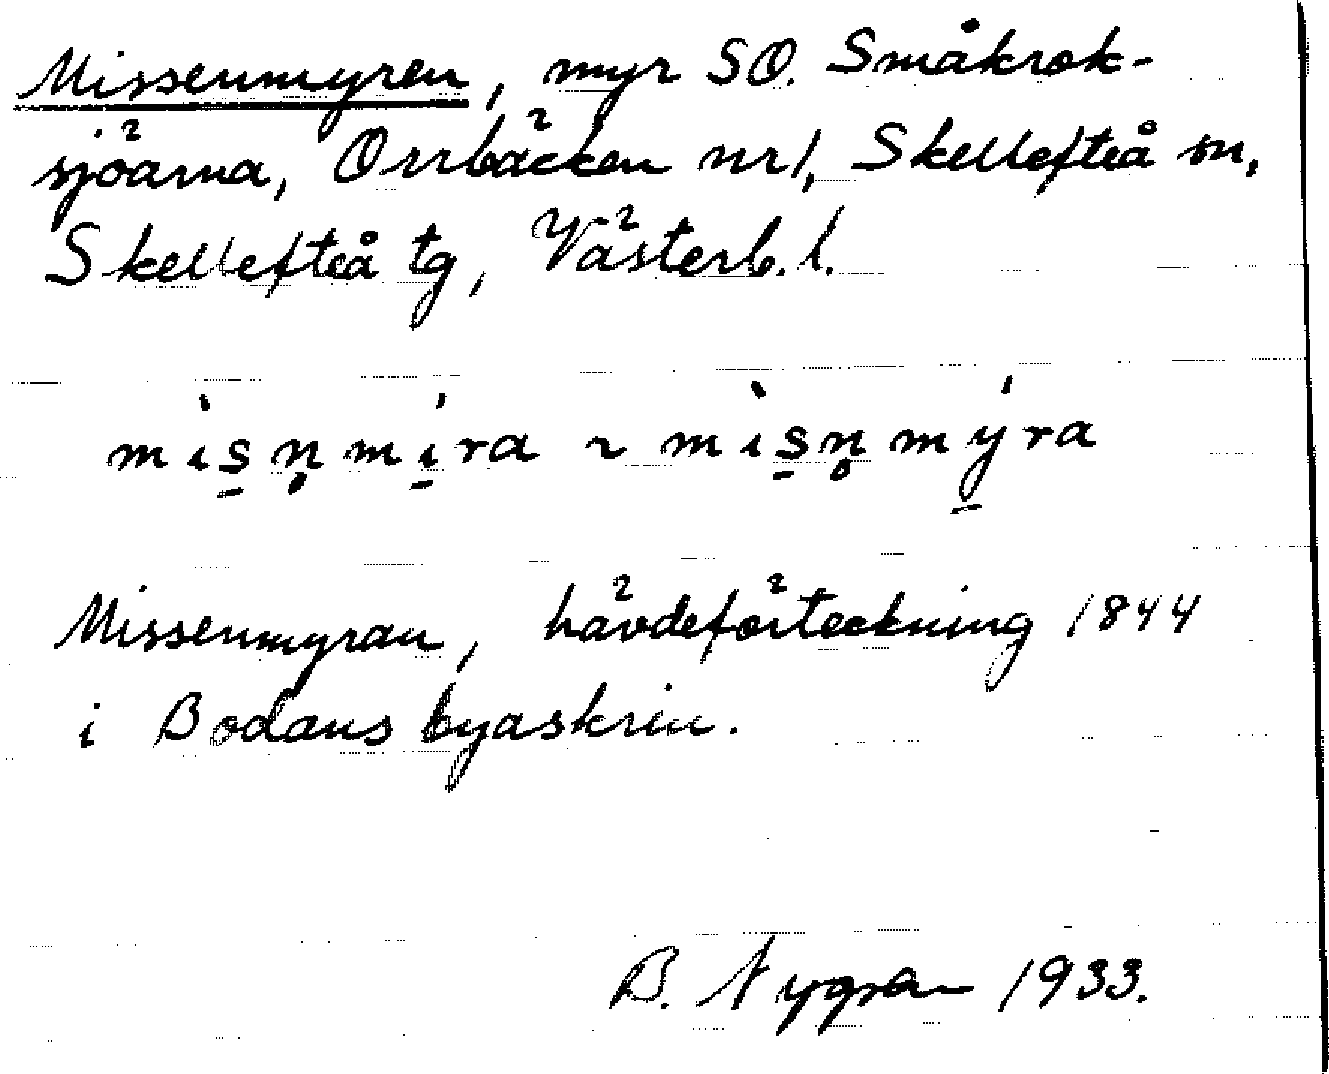 Missenmyren, myr SO. Småkrok-
sjöarna, Orrbäcken nr 1, Skellefteå sn,
Skellefteå tg, Västerb. l.
mìs̱n̥mí̱ra ~ mìs̱n̥mý̱ra
Missenmyran, hävdeförteckning 1844
i Bodans byaskrin.
B. Nygren 1933.